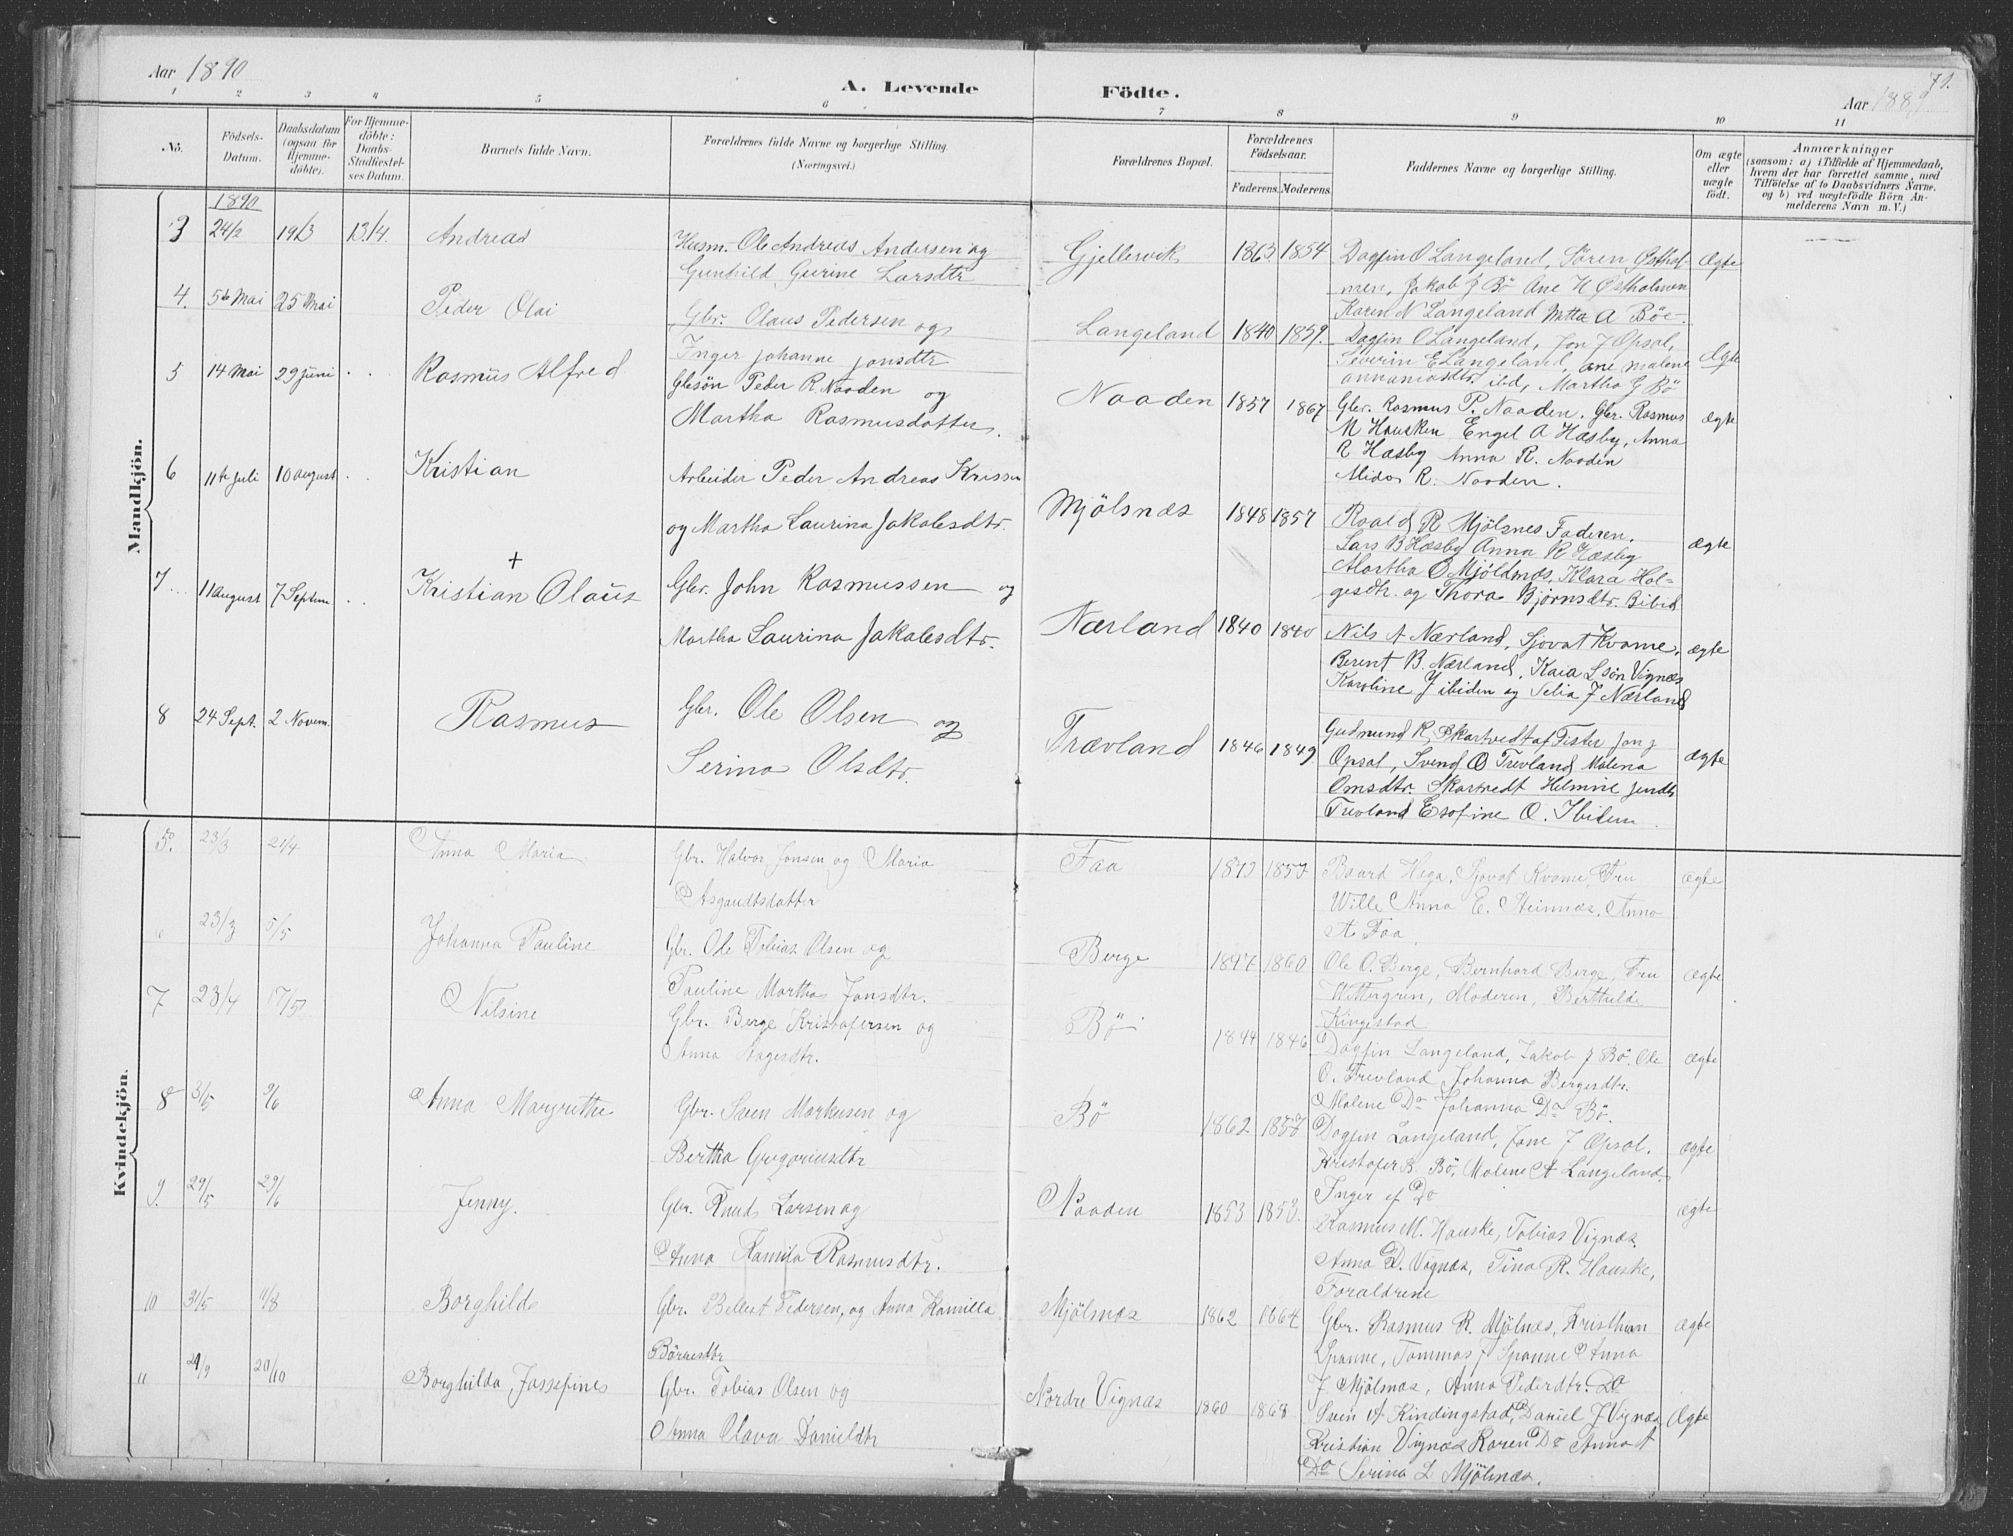 Aar 1890
A. Levende
Födte.
Aar 1889
71.
1 2 3 4 5 6 7 8 9 10 11
No.
Födsels-
Datum.
Daabsdatum
(ogsaa for
Hjemme-
döbte).
For Hjemme-
döbte:
Daabs-
Stadfæstel-
ses Datum.
Barnets fulde Navn.
Forældrenes fulde Navne og borgerlige Stilling.
(Næringsvei.)
Forældrenes Bopæl.
Forældrenes
Födselsaar.
Faderens. Moderens.
Faddernes Navne og borgerlige Stilling.
Om ægte
eller
uægte
født.
Anmærkninger
(saasom: a) i Tilfælde af Hjemmedaab,
hvem der har forrettet samme, med
Tilföielse af to Daabsvidners Navne.
og b) ved uægtefödte Börn An-
melderens Navn m. V.)
Mandkjön.
1890
3 24/2 19/3 13/4. Andreas
Husm. Ole Andreas Andersen og
Gunhild Gurine Larsdtr
Gjellesvik 1863 1854
Dagfin O Langeland, Sören Østhol-
men, Jakob J Bö Ane H Østholmen
Karen N Langeland Mitta A Böe
ægte
4. 5te Mai 25 Mai Peder Olai
Gbr. Olaus Pedersen og
Inger Johanne Jonsdtr
Langeland 1840 1859.
Dagfin O Langeland, Jon J Opsal,
Severin E Langeland, ane malene
annaniasdtr. ibd, Martha G Bö
Ægte
5 14 Mai 29 juni Rasmus Alfred
Gbsön Peder R. Naaden og
Martha Rasmusdatter.
Naaden 1857 1867
Gbr. Rasmus P. Naaden. Gbr. Rasmus
M Hausken Engel A Hæsby, Anna
R Hæsby Anna R. Naaden
Alida R. Naaden.
ægte
6 11te Juli 10 august Kristian
Arbeider Peder Andreas Krissen
og Martha Laurina Jakobsdtr.
Mjölsnæs 1848 1857
Roald R Mjölsnes Faderen.
Lars B Hæsby Anna R Hæsby
Martha O Mjöldnæs, Klara Hol-
gesdtr. og Thora Björnsdtr. Bibid
ægte
7 11 august 7 Septem Kristian Olaus +
Gbr. John Rasmussen og
Martha Laurina Jakobsdtr.
Nærland 1840 1840
Nils A Nærland, Sjovat Kvame,
Berent B. Nærland, Kaia L søn Vignæs
Karoline J ibiden og Selia J Nærland
ægte
8 24 Sept. 2 Novem. Rasmus
Gbr. Ole Olsen og
Serina Olsdtr.
Trævland 1846 1849
Gudmund R. Skartvedt af Fister Jon J
Opsal, Svend O Trevland Malena
Omsdtr. Skartvedt Helmine Jensdtr
Trevland Esofine O. Ibidem
ægte
Kvindekjön.
5. 23/3 21/4 Anna Maria
Gbr. Halvor Jonsen og Maria
Asgautsdatter
Faa 1843 1857
Baard Hega, Sjovat Kvame, Fru
Wille Anna E. Steinnæs, Anna
A. Faa.
ægte
6 23/3 5/5 Johanna Pauline
Gbr. Ole Tobias Olsen og
Pauline Martha Jonsdtr.
Berge 1847 1860
Ole O. Berge, Bernhard Berge, Fru
Wittergren, Moderen, Berthilde
Kingestad
ægte
7 23/4 17/5 Nilsine
Gbr. Berge Kristofersen og
Anna Aagesdtr.
Bö 1844 1846
Dagfin Langeland, Jakob J Bö. Ole
O. Trevland Johanna Bergesdtr.
Malene Do Johanna Do Bö.
ægte
8 3/5 9/6 Anna Margrethe
Gbr. Sven Markusen og
Bertha Gregoriusdtr
Bö 1862 1857
Dagfin Langeland, Jone J Opsal,
Kristofer B. Bö, Malene A Langeland,
Inger ef Do
ægte
9. 29/5 29/6 Jenny.
Gbr. Knud Larsen og
Anna Kamila Rasmusdtr.
Naaden 1853 1853
Rasmus M. Hauske, Tobias Vignæs.
Anna D. Vignæs, Tina R. Hauske,
Foraldrene
ægte
10 31/5 11/8 Borghild
Gbr. Bellest Pedersen, og Anna Kamilla
Börresdtr
Mjölsnæs 1862 1864
Gbr. Rasmus R. Mjölnæs, Kristhian
Spanne, Tommas J Spanne Anna
J Mjölsnæs, Anna Pederdtr. Do
ægte
11 21/9 20/10 Borghilda Jossefines
Gbr. Tobias Olsen og
Anna Olava Danieldtr
Nordre Vignæs 1860 1868
Sven A Kindingstad, Daniel J Vignæs
Kristian Vignæs Karen Do Anna A
Do Serina L Mjölnæs.
Ægte